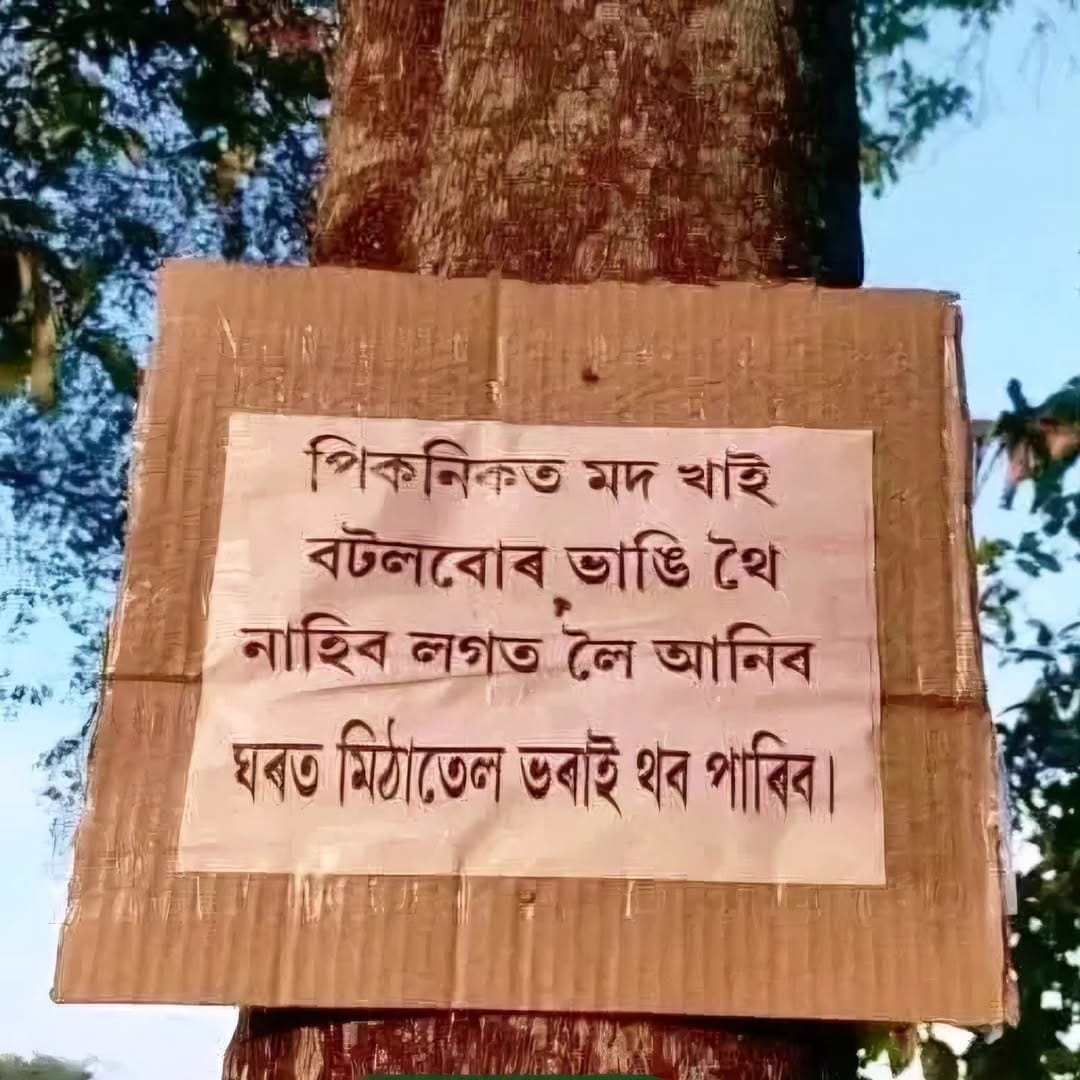 পিকনিকত মদ খাই
বটলবোৰ ভাঙি থৈ
নাহিব লগত লৈ আনিব
ঘৰত মিঠাতেল ভৰাই থব পাৰিব।